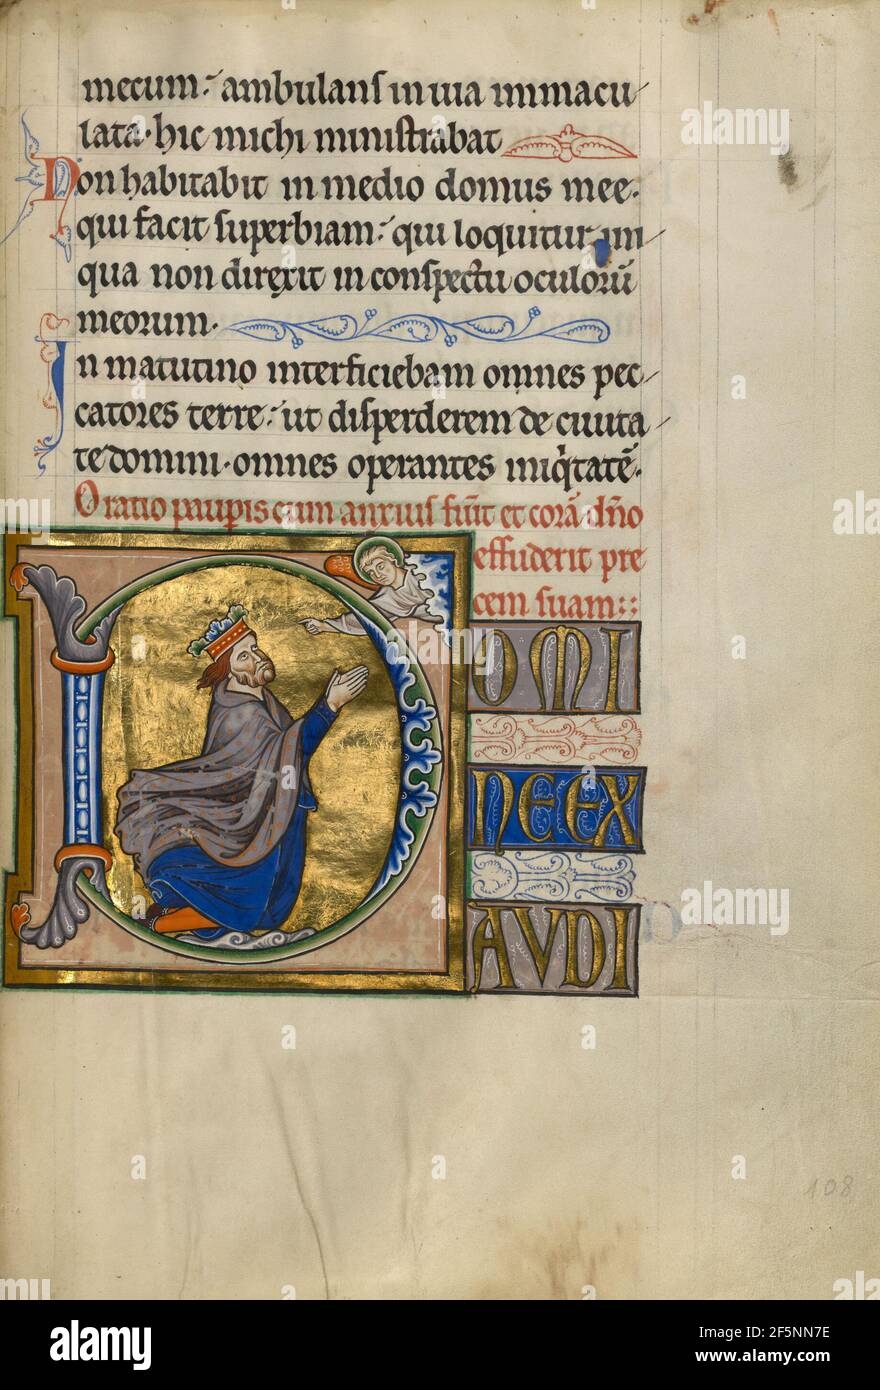 mecum: ambulans in uia immacu
lata. hic michi ministrabat
Non habitabit in medio domus mee.
qui facit superbiam: qui loquitur ini
qua non direxit in conspectu oculorū
meorum.
In matutino interficiebam omnes pec
catores terre: ut disperderem de ciuita
te domini. omnes operantes iniq̇tatē.
Oratio paup̲is cum anxius fuīt et corā dn̄o
effuderit pre
cem suam::
DOMI
NE EX
AVDI
108
alamy
Image ID: 2F5NN7E
www.alamy.com